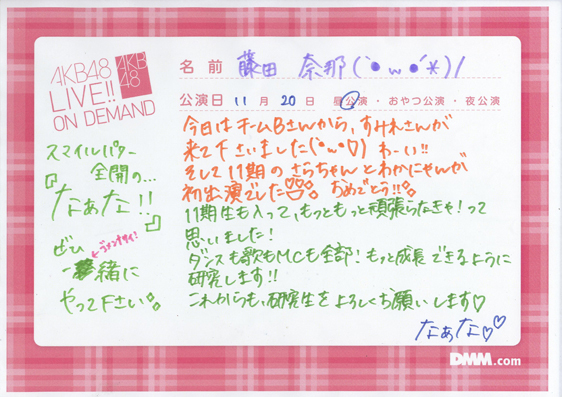 AKB48
LIVE!!
ON DEMAND
AKB
48
名前 藤田 奈那(`●ω●´*)/
公演日 11月20日 昼公演・おやつ公演・夜公演
今日はチームBさんから、すみれさんが
来て下さいました(`●ω●´♡) わーい!!
そして11期のさらちゃんとわかにゃんが
初出演でした おめでとう!!
11期生も入って、もっともっと頑張らなきゃ!って
思いました!
ダンスも歌もMCも全部!もっと成長できるように
研究します!!
これからも、研究生をよろしくお願いします♡
なぁな♡♡
スマイルパワー
全開の...
『なぁな!!』
ぜひ
←ゴメンナサイ!
一緒に
やって下さい
DMM.com